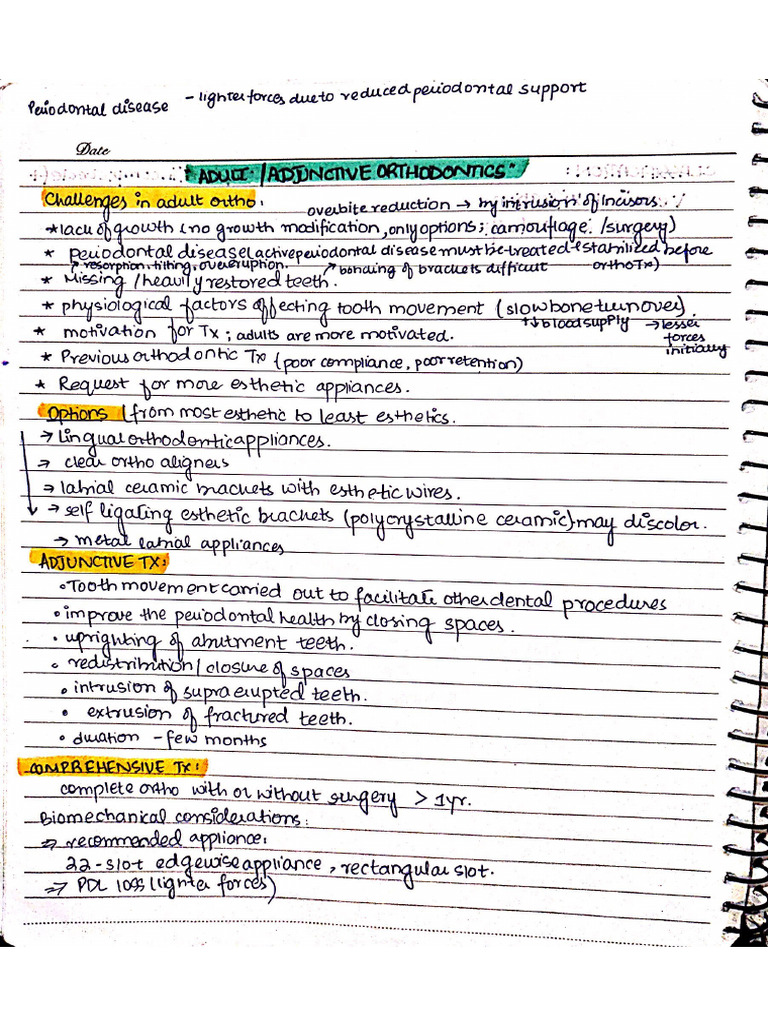 Periodontal disease - lighter forces due to reduced periodontal support
Date
"ADULT /ADJUNCTIVE ORTHODONTICS"
Challenges in adult ortho: overbite reduction → by intrusion of Incisors.
*lack of growth (no growth modification, only options; camouflage /surgery)
* periodontal disease (active periodontal disease must be treated & stabilized before ortho Tx)
↗ resorption, tilting, overeruption. ↗ bonding of brackets difficult
* Missing /heavily restored teeth.
* physiological factors affecting tooth movement (slow bone turnover).
↑↓ blood supply → lesser forces initially
* motivation for Tx; adults are more motivated.
* Previous orthodontic Tx (poor compliance, poor retention)
* Request for more esthetic appliances.
Options (from most esthetic to least esthetics.
→ lingual orthodontic appliances.
→ clear ortho aligners
→ labial ceramic brackets with esthetic wires.
→ self ligating esthetic brackets (polycrystalline ceramic) may discolor.
→ metal labial appliances
ADJUNCTIVE TX:
• Tooth movement carried out to facilitate other dental procedures
• improve the periodontal health by closing spaces.
• uprighting of abutment teeth.
• redistribution/closure of spaces
• intrusion of supraerupted teeth.
• extrusion of fractured teeth.
• duration - few months
COMPREHENSIVE TX:
complete ortho with or without surgery > 1yr.
Biomechanical considerations:
⇒ recommended appliance:
22-slot edgewise appliance, rectangular slot.
⇒ PDL loss (lighter forces)